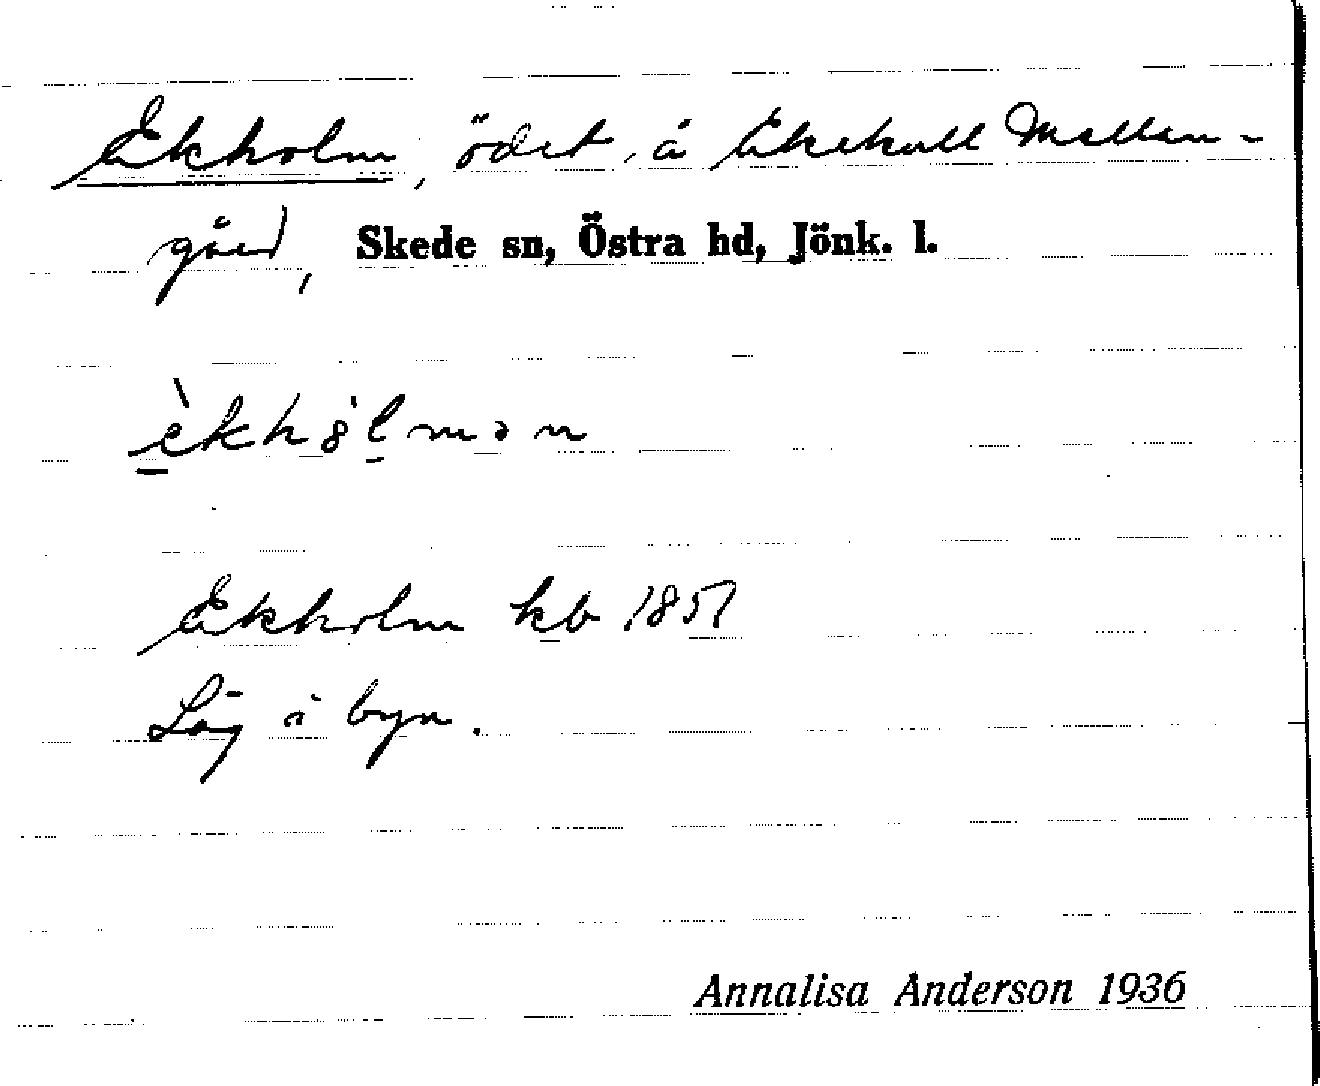 Ekholm, ödet, å Ekekull Mellan-
gård, Skede sn, Östra hd, Jönk. l.
èkhȯlmən
Ekholm kb 1857
Låg i byn.
Annalisa Anderson 1936